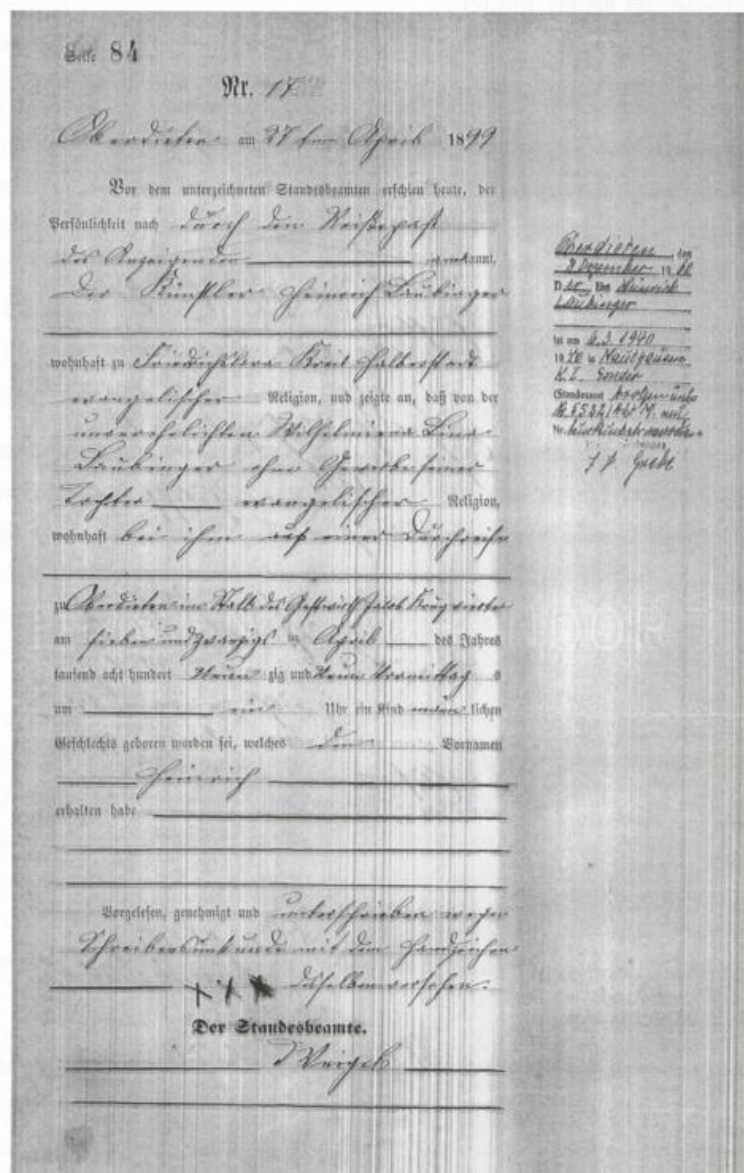 Seite 84
Nr. 17
Oberdieten am 27ten April 1899
Vor dem unterzeichneten Standesbeamten erschien heute, der
Persönlichkeit nach durch den Reisepaß
des Anzeigenden anerkannt,
der Künstler Heinrich Laubinger
wohnhaft zu Kreis Halberstadt
evangelischer Religion, und zeigte an, daß von der
unverehelichten Lina
Laubinger ohne Gewerbe seiner
Tochter evangelischer Religion,
wohnhaft bei ihm auf einer Durchreise
zu Oberdieten im Stall des Gastwirth Jakob
am sieben und zwanzigsten April des Jahres
tausend acht hundert neun zig und neun Vormittags
um ein Uhr ein Kind männlichen
Geschlechts geboren worden sei, welches den Vornamen
Heinrich
erhalten habe
Vorgelesen, genehmigt und unterschrieben wegen
Schreibensunkunde mit dem Handzeichen
+++ desselben versehen.
Der Standesbeamte.
Oberdieten, den
Dezember 19
D er Heinrich
Laubinger
ist am 3.1940
19 in Mauthausen
K.L.
(Standesamt
Nr.